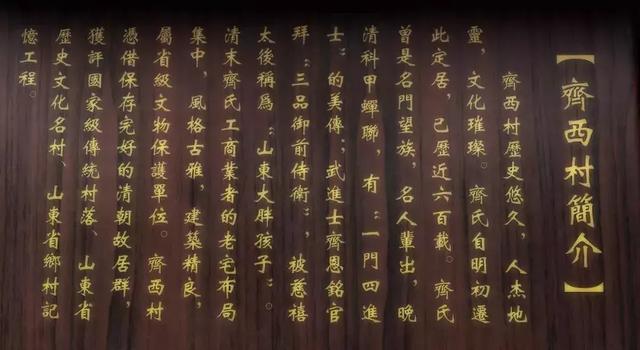 【齊西村簡介】
齊西村歷史悠久，人杰地
靈，文化璀璨。齊氏自明初遷
此定居，已歷近六百載。齊氏
曾是名門望族，名人輩出，晚
清科甲蟬聯，有：一門四進
士：的美傳：武進士齊恩銘官
拜：三品御前侍衛：，被慈禧
太後稱爲：山東大胖孩子：。
清末齊氏工商業者的老宅布局
集中，風格古雅，建築精良，
屬省級文物保護單位。齊西村
憑借保存完好的清朝故居群，
獲評國家級傳統村落、山東省
歷史文化名村、山東省鄉村記
憶工程。